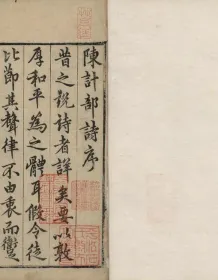 陳計部詩序
昔之說詩者詳矣要以敦
厚和平為之體耳假令徒
比節其聲律不由衷而鬱